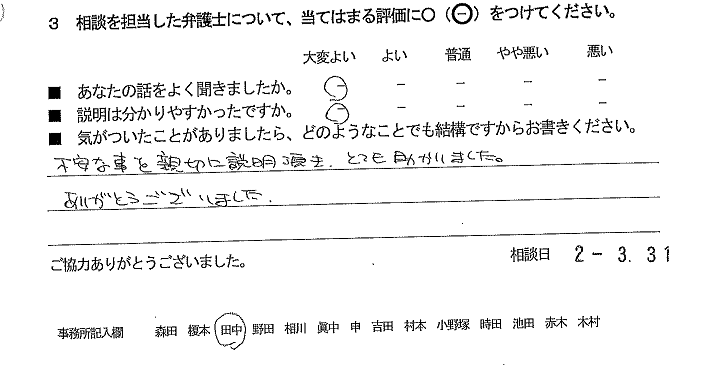 3 相談を担当した弁護士について、当てはまる評価に○（⊖）をつけてください。
大変よい よい 普通 やや悪い 悪い
■ あなたの話をよく聞きましたか。 ⊖ － － － －
■ 説明は分かりやすかったですか。 ⊖ － － － －
■ 気がついたことがありましたら、どのようなことでも結構ですからお書きください。
不安な事を親切に説明頂き、とても助かりました。
ありがとうございました。
ご協力ありがとうございました。
相談日 2－3.31
事務所記入欄 森田 榎本 田中 野田 相川 眞中 申 吉田 村本 小野塚 時田 池田 赤木 木村